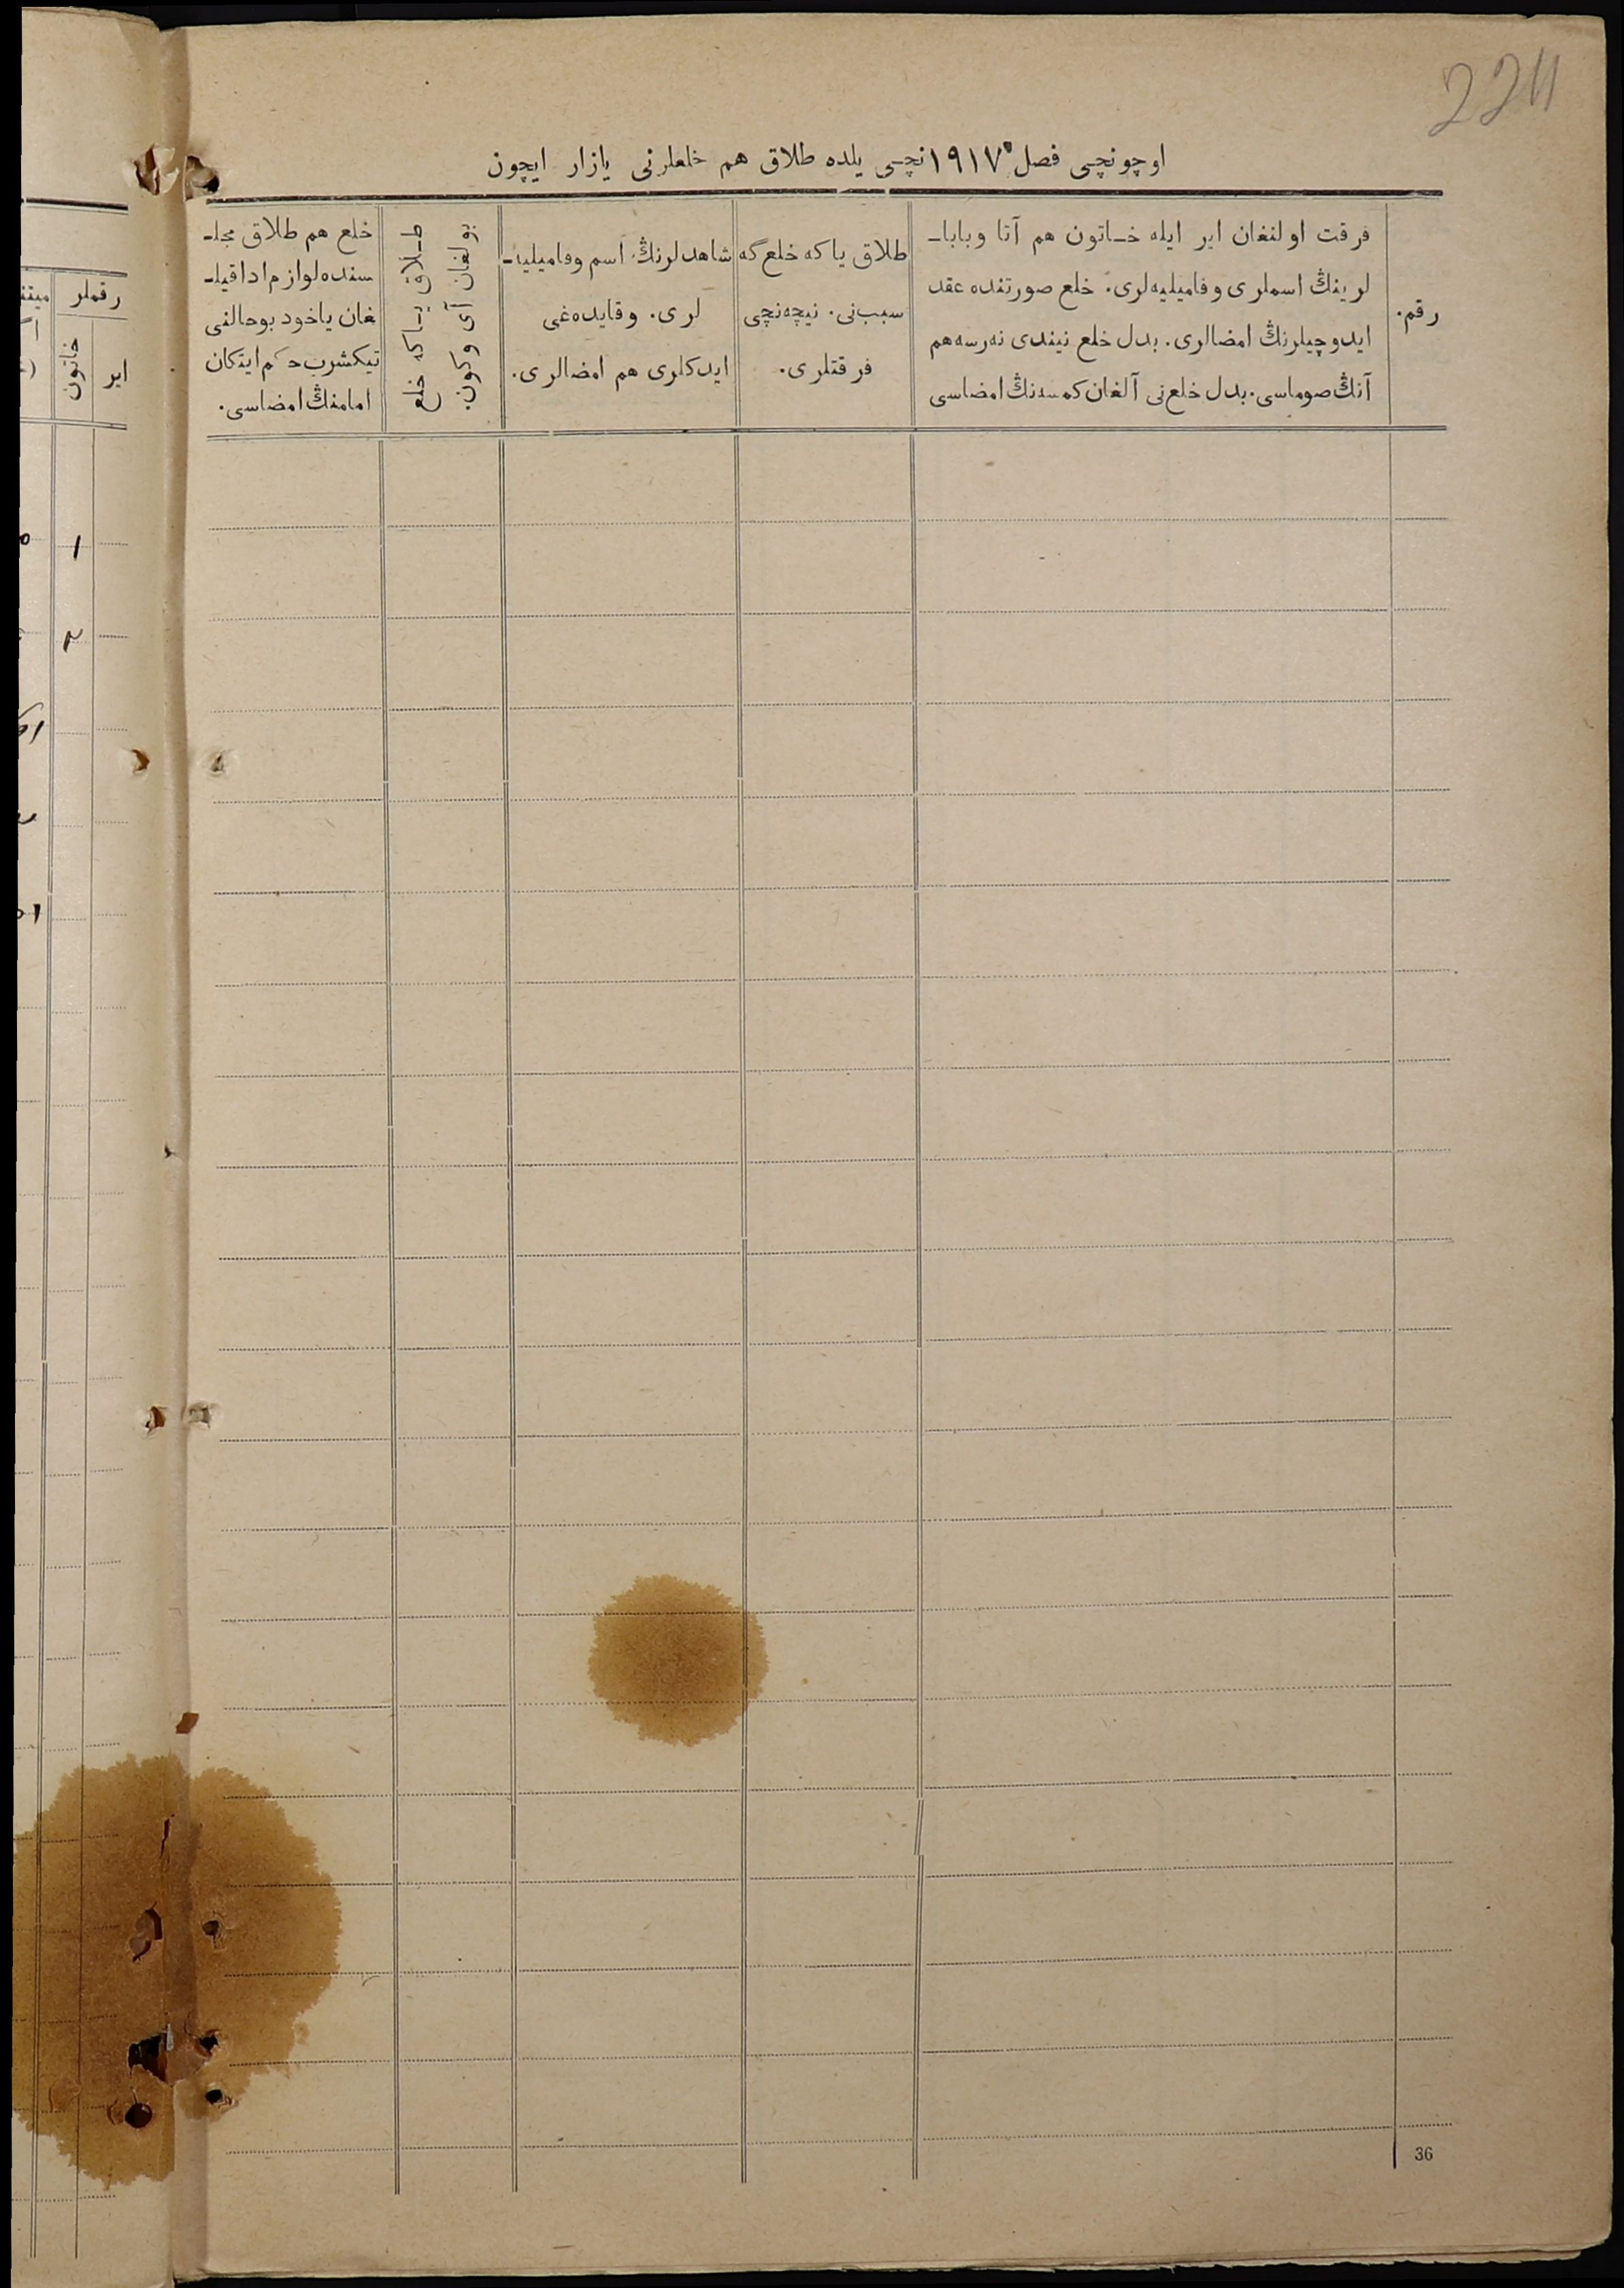 2211
اوچونچی فصل ١٩١٧ نچی یلده طلاق هم خلعلرنی یازار ایچون
رقم.
فرقت اولنغان ایر ایله خـاتون هم آتا وبابا-
لرینڭ اسملری وفامیلیه‌لری. خلع صورتنده عقد
ایدوچیلرنڭ امضالری. بدل خلع نیندی نه‌رسه هم
آنڭ صوماسی. بدل خلع‌نی آلغان کمسه‌نڭ امضاسی
طلاق یاکه خلع‌گه
سبب‌نی. نیچه‌نچی
فرقتلری.
شاهدلرنڭ اسم وفامیلیه-
لری. وقایده‌غی
ایدکلری هم امضالری.
طـلاق یـاکه خلع
بولغان آی وکون.
خلع هم طلاق مجلـ-
سنده لوازم ادا قیلـ-
غان یاخود بوحالنی
تیکشرب حکم ایتکان
امامنڭ امضاسی.
36
رقملر
ایر
خاتون
١
٢